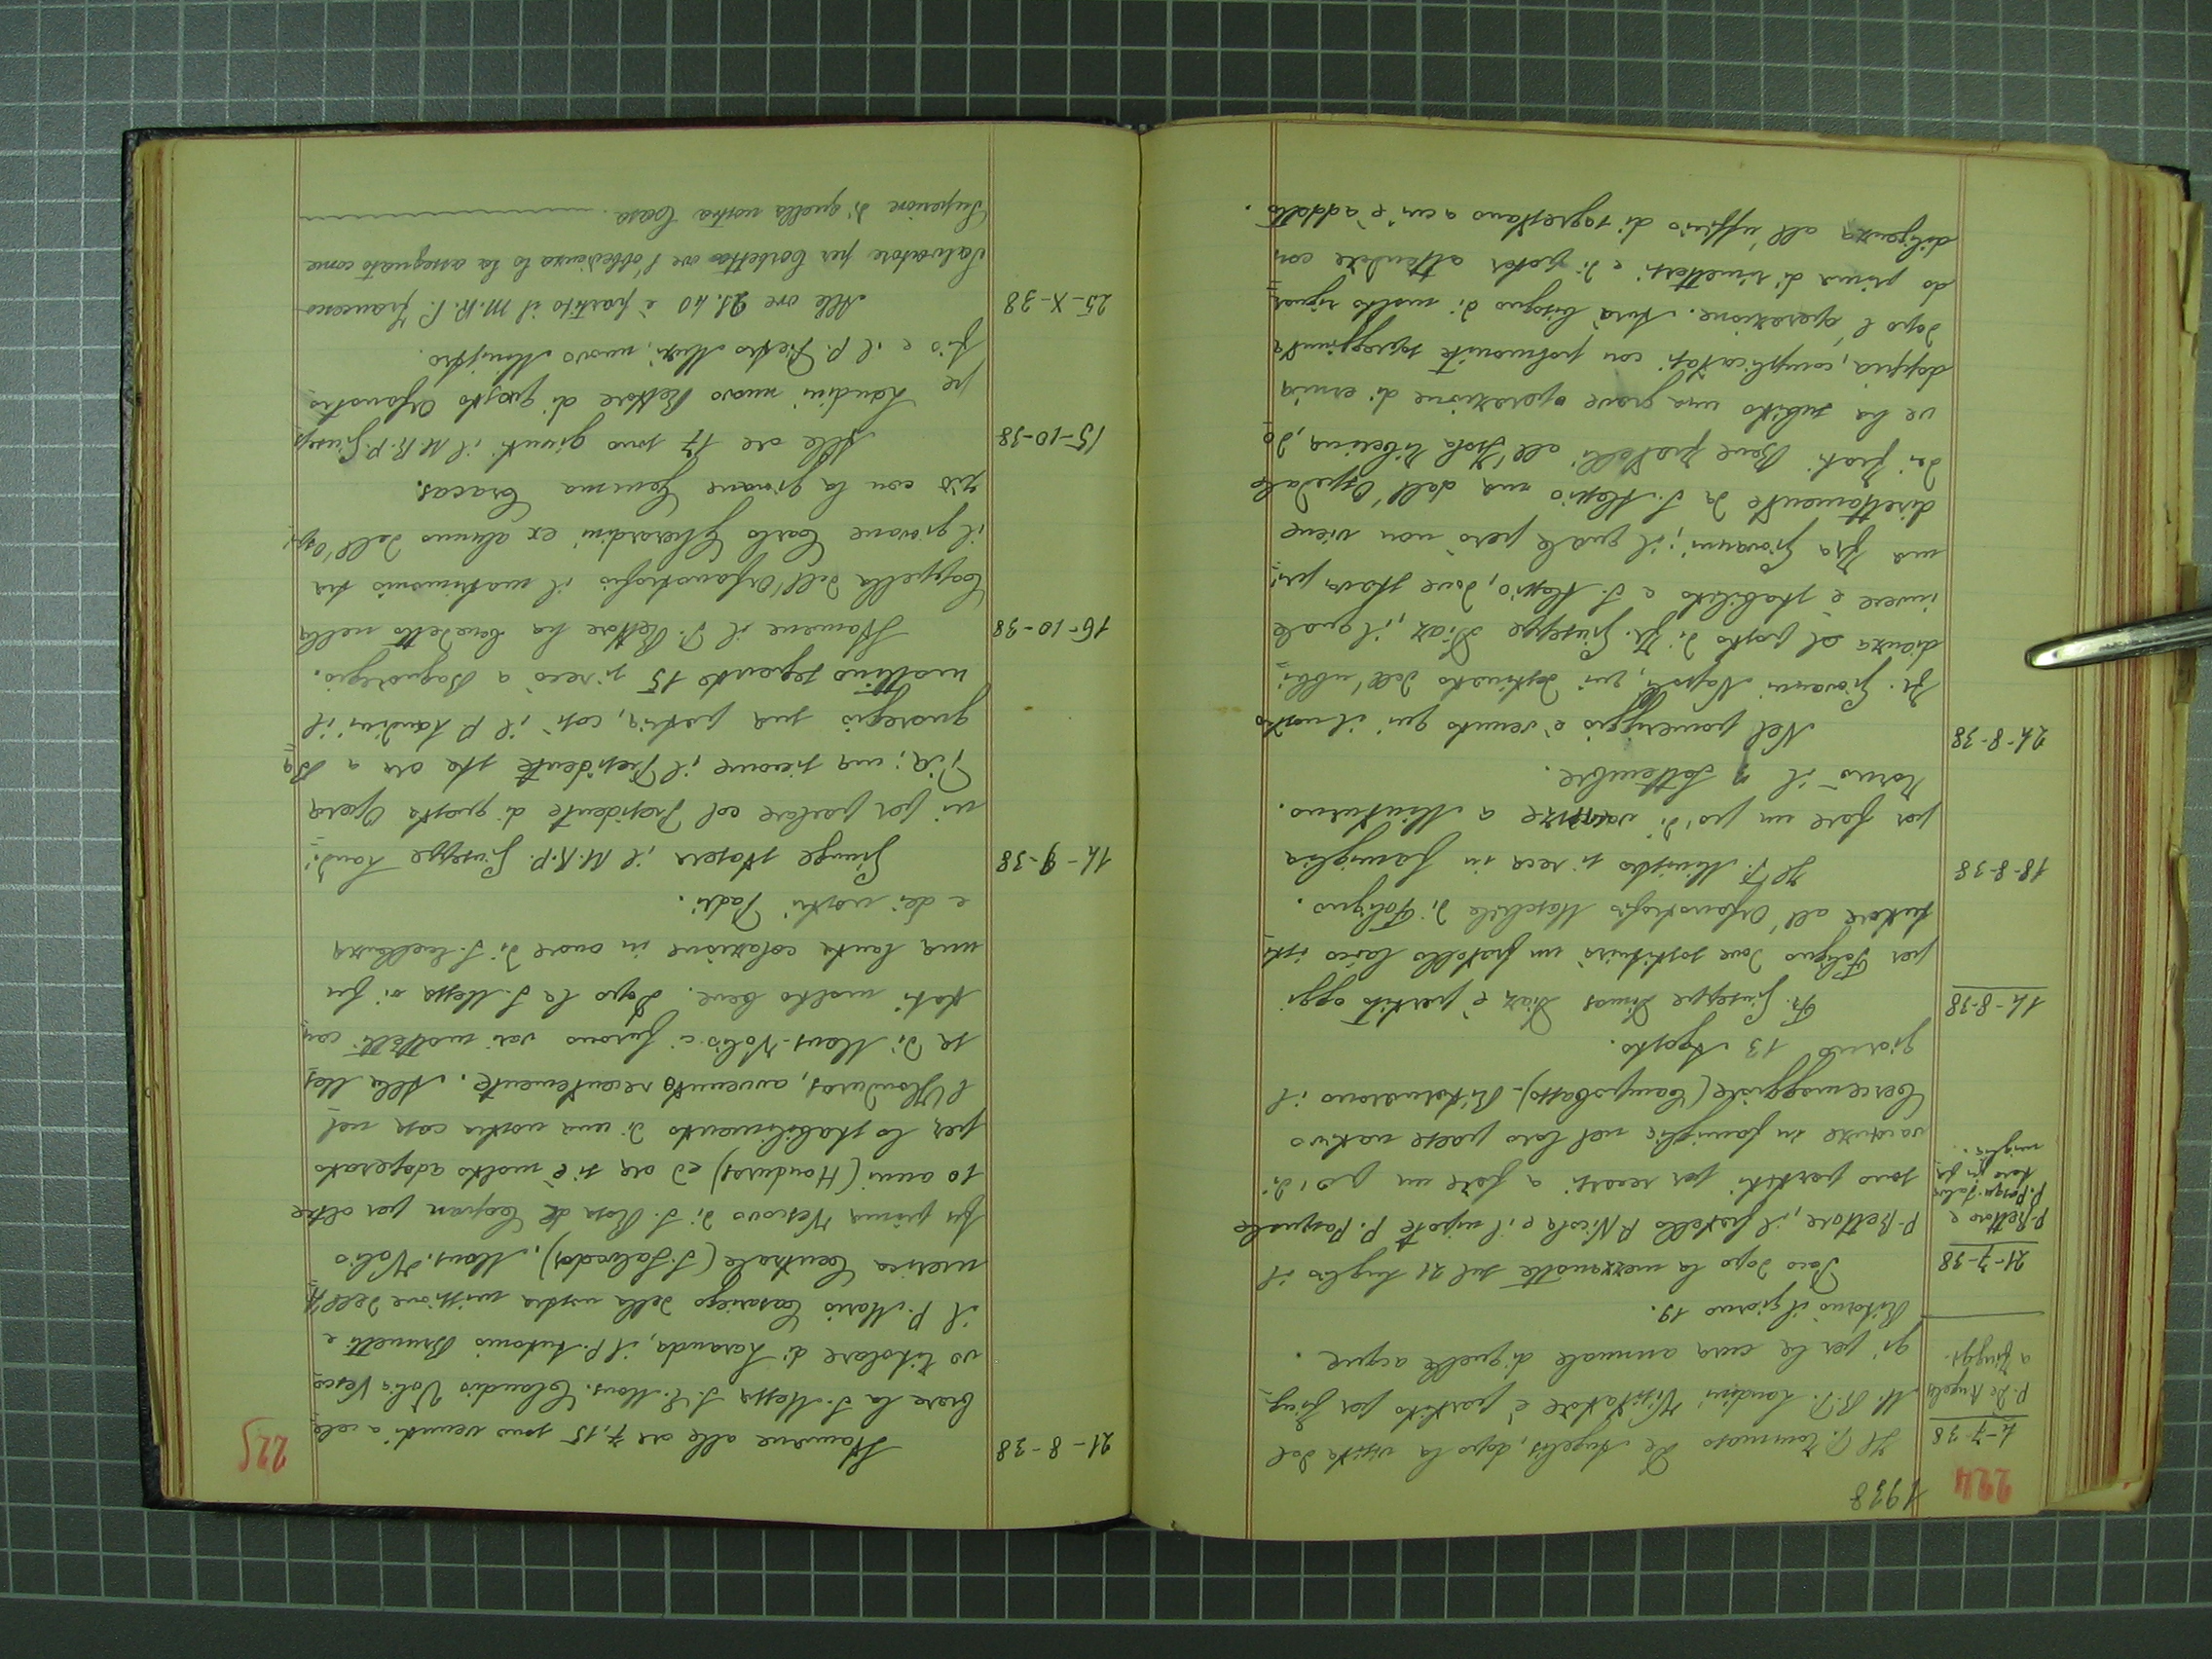 224
1938
4-7-38
P. De Angelis
a Fiuggi.
Il P. Tommaso De Angelis, dopo la visita del
M. R. P. Landini Visitatore è partito per Fiug=
gi per la cura annuale di quelle acque.
Ritornò il giorno 19.
21-7-38
P. Rettore e
P. Pasqu. Salv.
loro in fa=
miglia.
Poco dopo la mezzanotte del 21 luglio il
P. Rettore, il fratello P. Nicola e il nipote P. Pasquale
sono partiti per recarsi a fare un po' di
vacanze in famiglia nel loro paese nativo
Cercemaggiore (Campobasso). Ritornarono il
giorno 13 Agosto.
14-8-38
Fr. Giuseppe Dimas Diaz è partito oggi
per Foligno dove sostituirà un fratello laico isti=
tutore all'Orfanotrofio Maschile di Foligno.
18-8-38
Il P. Ministro si reca in famiglia
per fare un po' di vacanze a Minturno.
Tornò il 9 Settembre.
24-8-38
Nel pomeriggio è venuto qui il nostro
Fr. Giovanni Napoli, qui destinato dall'ubbi=
dienza al posto di Fr. Giuseppe Diaz, il quale
invece è stabilito a S. Alessio, dove stava pri=
ma Fra Giovanni; il quale però non viene
direttamente da S. Alessio ma dall'Ospedale
dei frati Bene fratelli all'Isola Tiberina, do=
ve ha subito una grave operazione di ernia
doppia, complicatasi con polmonite sopraggiunta
dopo l'operazione. Avrà bisogno di molto riguar=
do prima di rimettersi e di poter attendere con
diligenza all'ufficio di sagrestano a cui è addetto.
225
21-8-38
Stamane alle ore 7,15 sono venuti a cele=
brare la S. Messa S. E. Mons. Claudio Volio Vesco=
vo titolare di Laranda, il P. Antonio Brunetti e
il P. Mario Casariego della nostra missione dell'A=
merica Centrale (S. Salvador). Mons. Volio
fu prima Vescovo di S. Rosa de Copan per oltre
10 anni (Honduras) ed ora si è molto adoperato
per lo stabilimento di una nostra casa nel
l'Honduras, avvenuto recentemente. Alla Mes=
sa di Mons. Volio ci furono vari mottetti can=
tati molto bene. Dopo la S. Messa vi fu
una lauta colazione in onore di S. Eccellenza
e dei nostri Padri.
14-9-38
Giunge stasera il M. R. P. Giuseppe Landi=
ni per parlare col Presidente di questa Opera
Pia; ma siccome il Presidente sta ora a Ba=
gnoregio sua patria, così il P. Landini il
mattino seguente 15 si recò a Bagnoregio.
16-10-38
Stamane il P. Rettore ha benedetto nella
Cappella dell'Orfanotrofio il matrimonio tra
il giovane Carlo Gherardini ex alunno dell'Ospi=
zio con la giovane Gemma Cracas.
15-10-38
Alle ore 17 sono giunti il M. R. P. Giusep=
pe Landini nuovo Rettore di questo Orfanotro=
fio e il P. Pietro Muzi, nuovo Ministro.
25-X-38
Alle ore 21.40 è partito il M. R. P. Francesco
Salvatore per Corbetta ove l'obbedienza lo ha assegnato come
Superiore di quella nostra Casa.